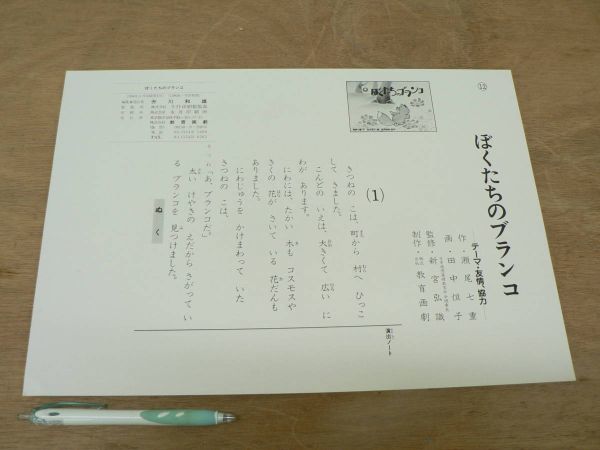 ⑫
ぼくたちのブランコ
テーマ・友情、協力
作・瀬尾七重
画・田中恒子
監修・新宮弘識
制作・教育画劇
ぼくたちブランコ
(1)
きつねの こは、町から 村へ ひっこ
して きました。
こんどの いえは、大きくて 広い に
わが あります。
にわには、たかい 木も コスモスや
きくの 花が さいて いる 花だんも
ありました。
にわじゅうを かけまわって いた
きつねの こは、
「あ、ブランコだ」
太い けやきの えだから さがって い
る ブランコを 見つけました。
ぬく
演出ノート
ぼくたちのブランコ